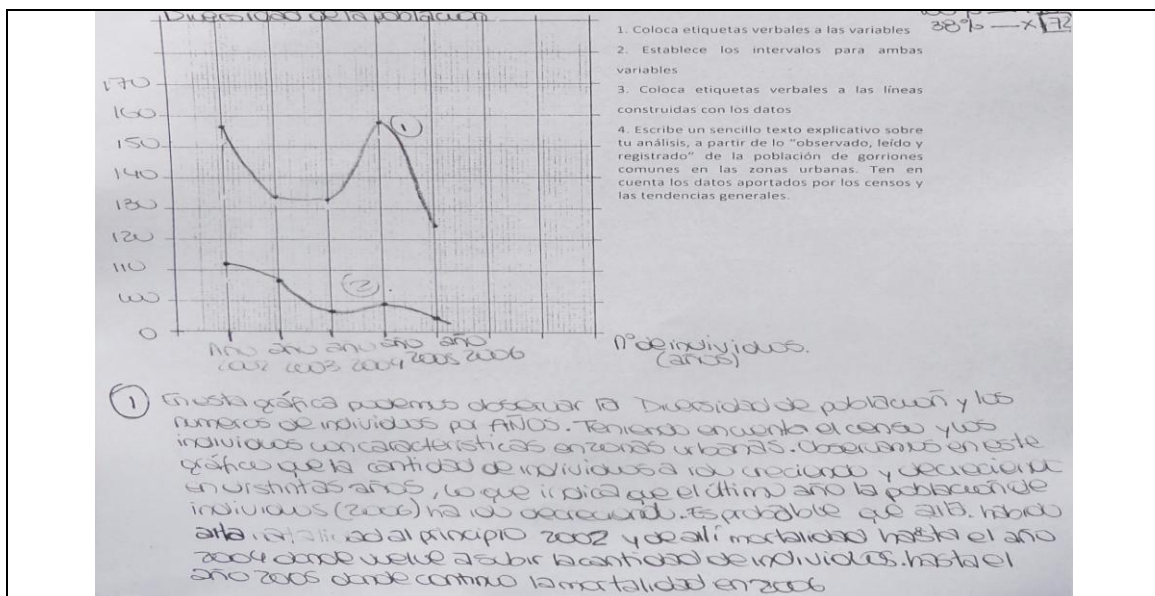 Diversidad de la población
38% — x 172
1. Coloca etiquetas verbales a las variables
2. Establece los intervalos para ambas
variables
3. Coloca etiquetas verbales a las líneas
construidas con los datos
4. Escribe un sencillo texto explicativo sobre
tu análisis, a partir de lo "observado, leído y
registrado" de la población de gorriones
comunes en las zonas urbanas. Ten en
cuenta los datos aportados por los censos y
las tendencias generales.
170
160
150
140
130
120
110
100
0
1
2
Año año año año año
2002 2003 2004 2005 2006
nº de individuos.
(años)
1 En esta gráfica podemos observar la Diversidad de población y los
numeros de individuos por AÑOS. Teniendo en cuenta el censo y los
individuos con características en zonas urbanas. Observamos en este
gráfico que la cantidad de individuos a ido creciendo y decreciendo
en distintas años, lo que indica que el último año la población de
individuos (2006) ha ido decreciendo. Es probable que allá habido
alta natalidad al principio 2002 y de allí mortalidad hasta el año
2004 donde vuelve a subir la cantidad de individuos. hasta el
año 2005 donde continuo la mortalidad en 2006